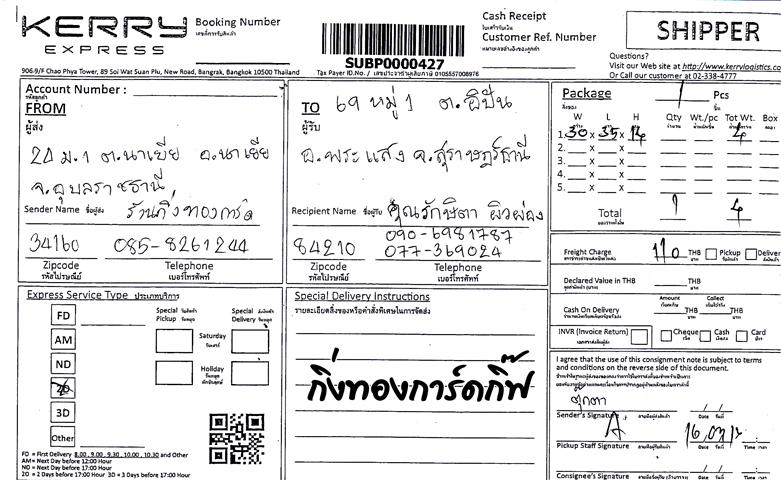 KERRY
EXPRESS
Booking Number
SUBP0000427
Cash Receipt
Customer Ref. Number
SHIPPER
Questions?
Visit our Web site at http://www.kerrylogistics.co
Or Call our customer at 02-338-4777
906.9/F Chao Phya Tower, 89 Soi Wat Suan Plu, New Road, Bangrak, Bangkok 10500 Thailand
Tax Payer ID.No. / เลขประจำตัวผู้เสียภาษี 0105557008976
Account Number :
FROM
ผู้ส่ง
20 ม.1 ต.นาเยีย อ.นาเยีย
จ.อุบลราชธานี
Sender Name ชื่อผู้ส่ง ร้านกิ่งทองการ์ด
34160 085-8261244
Zipcode Telephone
รหัสไปรษณีย์ เบอร์โทรศัพท์
TO 69 หมู่ 1 ต.อิปัน
ผู้รับ
อ.พระแสง จ.สุราษฎร์ธานี
Recipient Name ชื่อผู้รับ คุณรักษิตา ผิวผ่อง
090-6981787
84210 077-369024
Zipcode Telephone
รหัสไปรษณีย์ เบอร์โทรศัพท์
Package 1 Pcs
W L H Qty Wt./pc Tot Wt. Box
1. 30 x 35 x 14 4
2. x x
3. x x
4. x x
5. x x
Total 1 4
Freight Charge 110 THB Pickup Deliver
Declared Value in THB THB
Amount Collect
Cash On Delivery THB THB
INVR (Invoice Return) Cheque Cash Card
Express Service Type ประเภทบริการ
FD
AM
ND
2D
3D
Other
Special Pickup
Special Delivery
Saturday
Holiday
FD = First Delivery 8.00 , 9.00 , 9.30 , 10.00 , 10.30 and Other
AM = Next Day before 12:00 Hour
ND = Next Day before 17:00 Hour
2D = 2 Days before 17:00 Hour 3D = 3 Days before 17:00 Hour
Special Delivery Instructions
รายละเอียดสิ่งของหรือคำสั่งพิเศษในการจัดส่ง
กิ่งทองการ์ดกิ๊ฟ
I agree that the use of this consignment note is subject to terms
and conditions on the reverse side of this document.
ตุ๊กตา
Sender's Signature Date
Pickup Staff Signature Date Time
Consignee's Signature Date Time